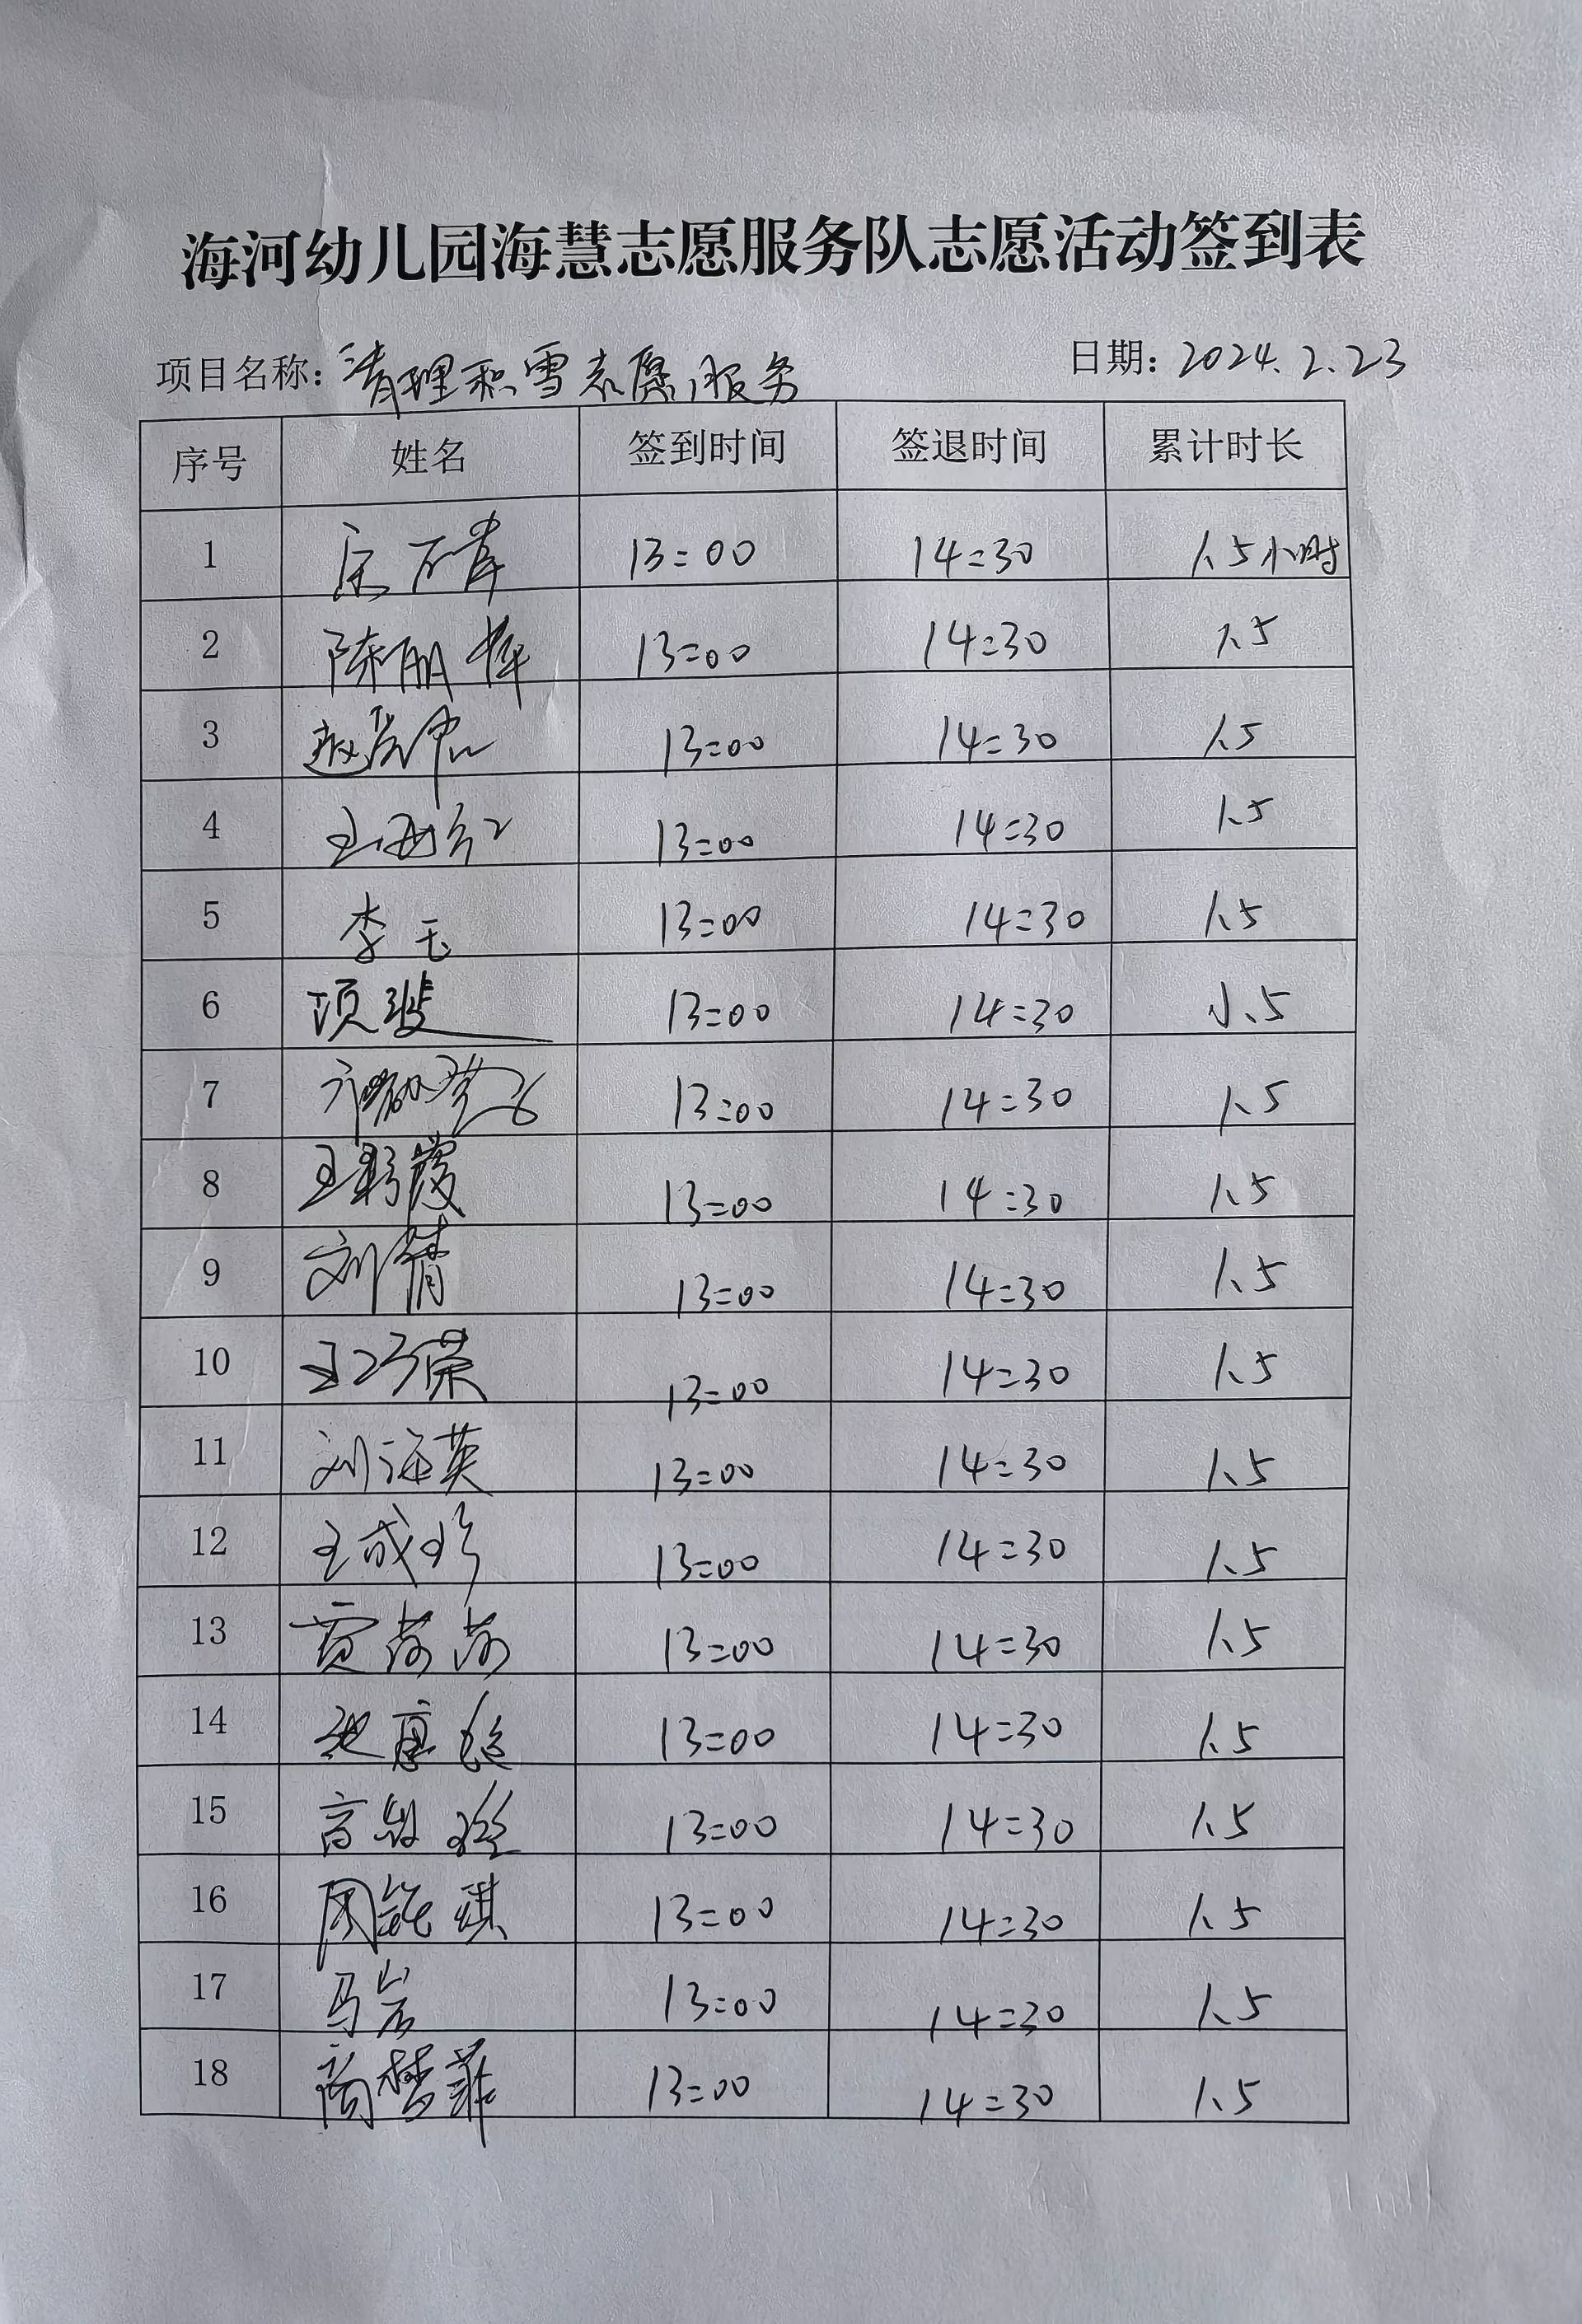 海河幼儿园海慧志愿服务队志愿活动签到表
项目名称：清理积雪志愿服务 日期：2024.2.23
序号 姓名 签到时间 签退时间 累计时长
1 13:00 14:30 1.5小时
2 陈丽 13:00 14:30 1.5
3 赵 13:00 14:30 1.5
4 王 13:00 14:30 1.5
5 李 13:00 14:30 1.5
6 项斐 13:00 14:30 1.5
7 13:00 14:30 1.5
8 王彩霞 13:00 14:30 1.5
9 刘菁 13:00 14:30 1.5
10 王巧荣 13:00 14:30 1.5
11 刘海英 13:00 14:30 1.5
12 王成珍 13:00 14:30 1.5
13 贾茹茹 13:00 14:30 1.5
14 13:00 14:30 1.5
15 高 13:00 14:30 1.5
16 周 琪 13:00 14:30 1.5
17 马岩 13:00 14:30 1.5
18 商梦菲 13:00 14:30 1.5